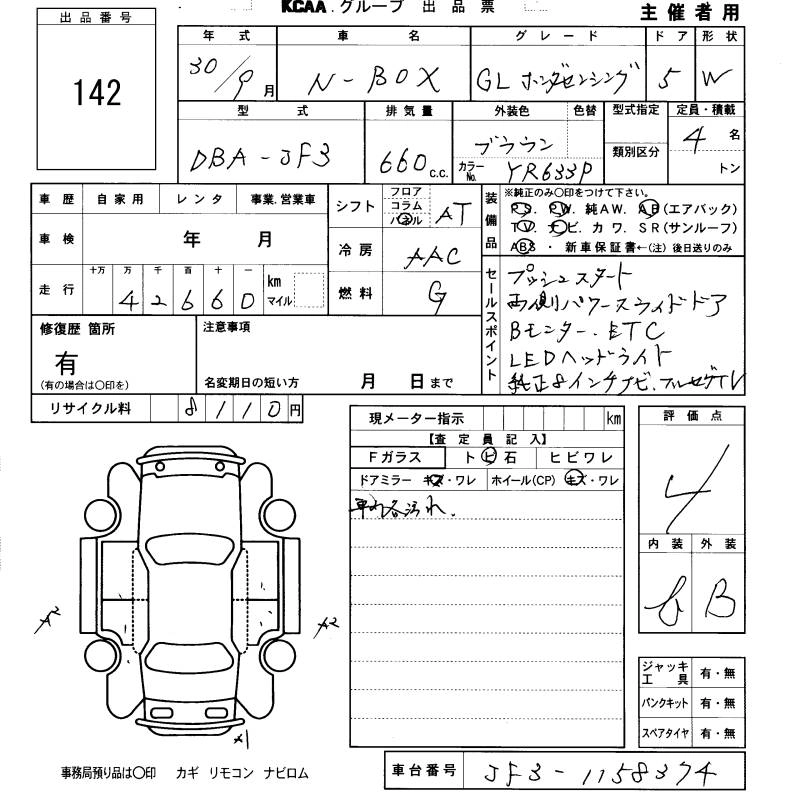 KCAA.グループ 出品票
主催者用
出品番号
142
年式 車名 グレード ドア 形状
30/9月 N-BOX GL ホンダセンシング 5 W
型式 排気量 外装色 色替 型式指定 定員・積載
類別区分
DBA-JF3 660c.c. ブラウン カラーNo. YR633P 4名
トン
車歴 自家用 レンタ 事業.営業車
車検 年 月
走行 十万 万 千 百 十 一
42660 km マイル
シフト フロア コラム パネル AT
冷房 AAC
燃料 G
装備品 ※純正のみ○印をつけて下さい。
PS. PW. 純AW. AB(エアバック)
TV. ナビ. カワ. SR(サンルーフ)
ABS・新車保証書←(注)後日送りのみ
セールスポイント
プッシュスタート
両側パワースライドドア
Bモニター.ETC
LEDヘッドライト
純正8インチナビ.フルセグTV
修復歴 箇所
有
(有の場合は○印を)
注意事項
名変期日の短い方 月 日まで
リサイクル料 8110円
現メーター指示 km
【査定員記入】
Fガラス トビ石 ヒビワレ
ドアミラー キズ・ワレ ホイール(CP) キズ・ワレ
車内各汚れ.
評価点
4
内装 外装
B
A2
A2
ジャッキ工具 有・無
パンクキット 有・無
スペアタイヤ 有・無
事務局預り品は○印 カギ リモコン ナビロム
車台番号 JF3-1158374